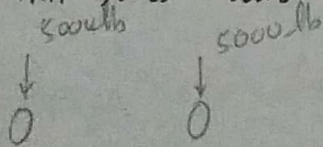 5000 lb 5000 lb